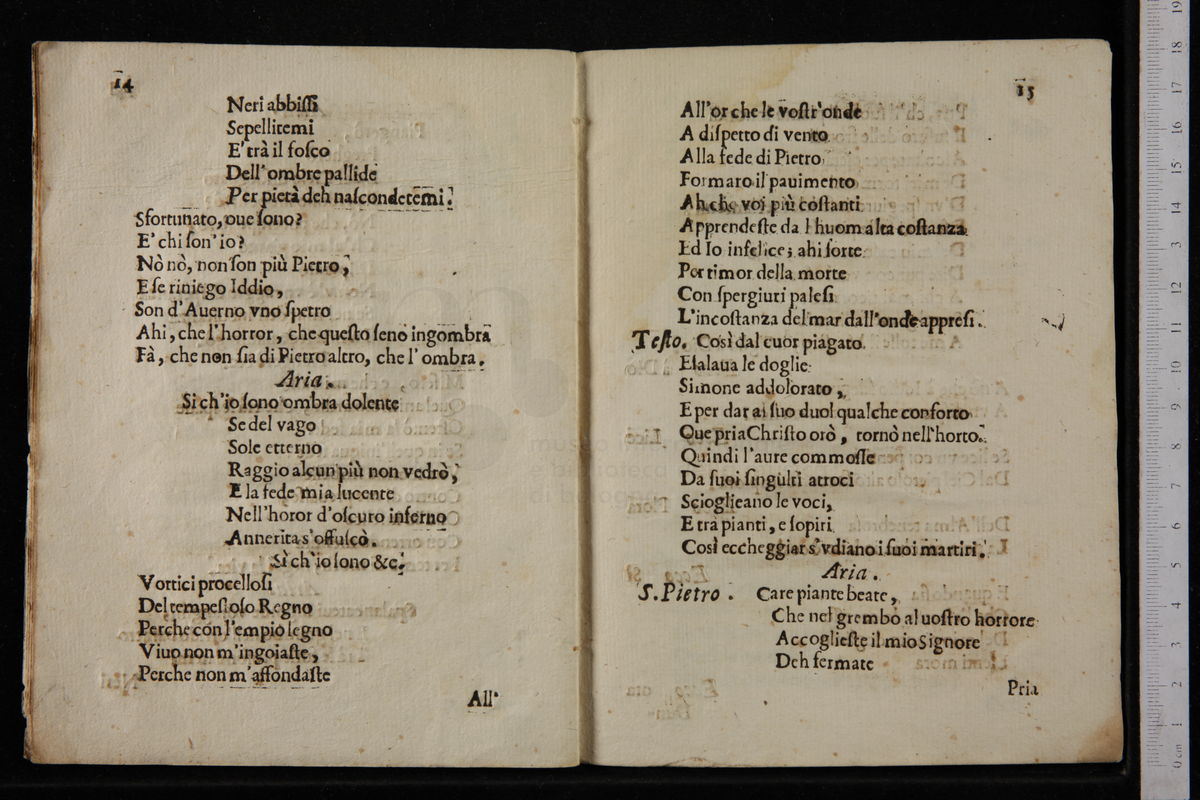 14
Neri abbiſſi
Sepellitemi
E' trà il foſco
Dell' ombre pallide
Per pietà deh naſcondetemi.
Sfortunato, oue ſono?
E' chi ſon' io?
Nò nò, non ſon più Pietro,
E ſe riniego Iddio,
Son d'Auerno vno ſpetro
Ahi, che l'horror, che queſto ſeno ingombra
Fà, che non ſia di Pietro altro, che l' ombra.
Aria.
Si ch'io ſono ombra dolente
Se del vago
Sole etterno
Raggio alcun più non vedrò,
E la fede mia lucente
Nell'horor d'oſcuro inferno
Annerita s'offuſcò.
Sì ch'io ſono &c.
Vortici procelloſi
Del tempeſtoſo Regno
Perche con l'empio legno
Viuo non m'ingoiaſte,
Perche non m'affondaſte
All'
15
All'or che le voſtr'onde
A diſpetto di vento
Alla fede di Pietro
Formaro il pauimento
Ah che voi più coſtanti
Apprendeſte da l huom alta coſtanza
Ed Io infelice; ahi ſorte
Per timor della morte
Con ſpergiuri paleſi
L'incoſtanza del mar dall'onde appreſi.
Teſto. Così dal cuor piagato
Eſalaua le doglie
Simone addolorato,
E per dar al ſuo duol qualche conforto
Que pria Chriſto orò, tornò nell'horto.
Quindi l'aure commoſſe
Da ſuoi ſingulti atroci
Scioglieano le voci,
E trà pianti, e ſopiri
Così eccheggiar s'vdiano i ſuoi martiri.
Aria.
S. Pietro. Care piante beate,
Che nel grembo al uoſtro horrore
Accoglieſte il mio Signore
Deh fermate
Pria